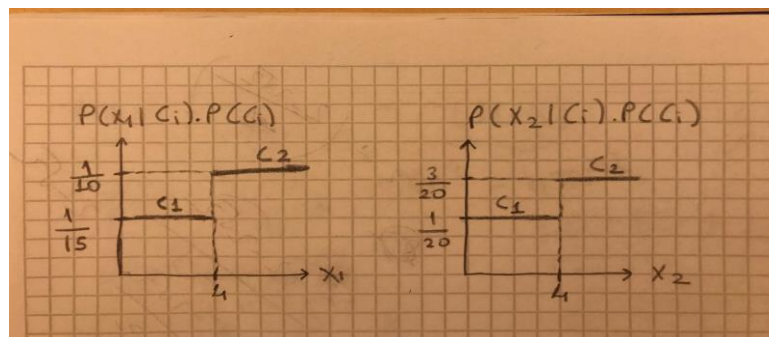 P(x₁|Ci).P(Ci)
1/10
C2
C1
1/15
4
x₁
P(x₂|Ci).P(Ci)
3/20
C2
C1
1/20
4
x₂